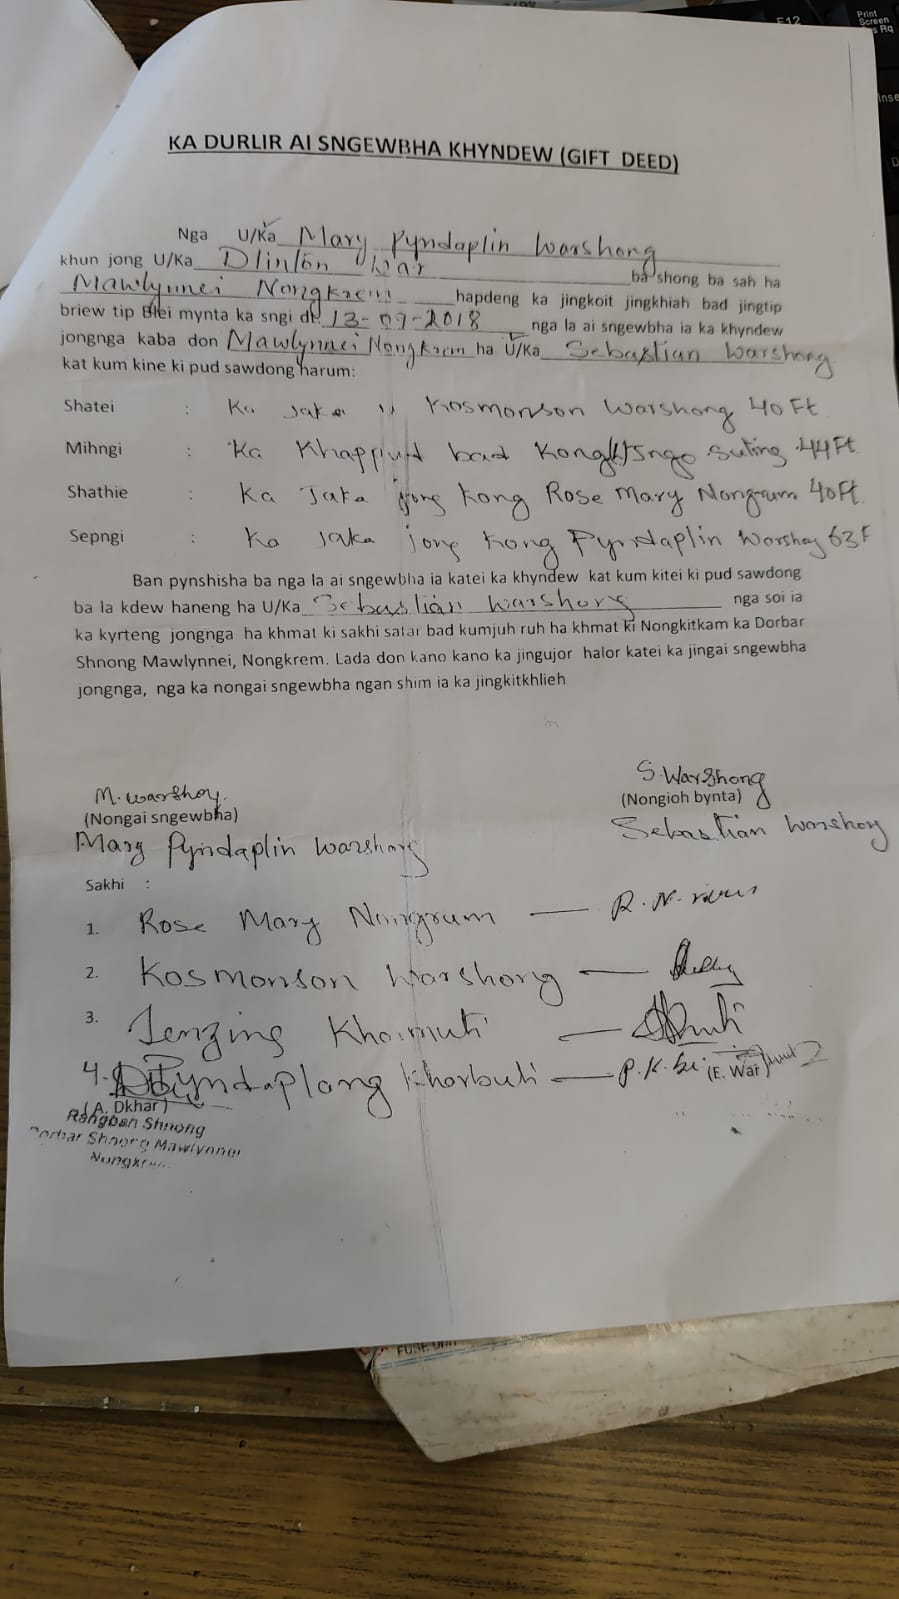 Print
Screen
F12
KA DURLIR AI SNGEWBHA KHYNDEW (GIFT DEED)
Nga U/Ka Mary Pyndaplin Warshong
khun jong U/Ka Dlinlon War ba shong ba sah ha
Mawlynnei Nongkrem hapdeng ka jingkoit jingkhiah bad jingtip
briew tip Blei mynta ka sngi dt. 13-09-2018 nga la ai sngewbha ia ka khyndew
jongnga kaba don Mawlynnei Nongkrem ha U/Ka Sebastian Warshong
kat kum kine ki pud sawdong harum:
Shatei : Ka Jaka u Kosmonson Warshong 40 Ft
Mihngi : Ka Khappud bad Kong Suting 44 Ft.
Shathie : Ka Jaka jong Kong Rose Mary Nongrum 40 Ft.
Sepngi : Ka Jaka jong Kong Pyndaplin Warshong 63 F
Ban pynshisha ba nga la ai sngewbha ia katei ka khyndew kat kum kitei ki pud sawdong
ba la kdew haneng ha U/Ka Sebastian Warshong nga soi ia
ka kyrteng jongnga ha khmat ki sakhi satar bad kumjuh ruh ha khmat ki Nongkitkam ka Dorbar
Shnong Mawlynnei, Nongkrem. Lada don kano kano ka jingujor halor katei ka jingai sngewbha
jongnga, nga ka nongai sngewbha ngan shim ia ka jingkitkhlieh
M. Warshong
(Nongai sngewbha)
Mary Pyndaplin Warshong
S. Warshong
(Nongioh bynta)
Sebastian Warshong
Sakhi :
1. Rose Mary Nongrum —
2. Kosmonson Warshong —
3. Tenzing Kharmuti —
4. Pyndaplang Kharbuti —
(E. War)
(A. Dkhar)
Rangbah Shnong
Dorbar Shnong Mawlynnei
Nongkrem